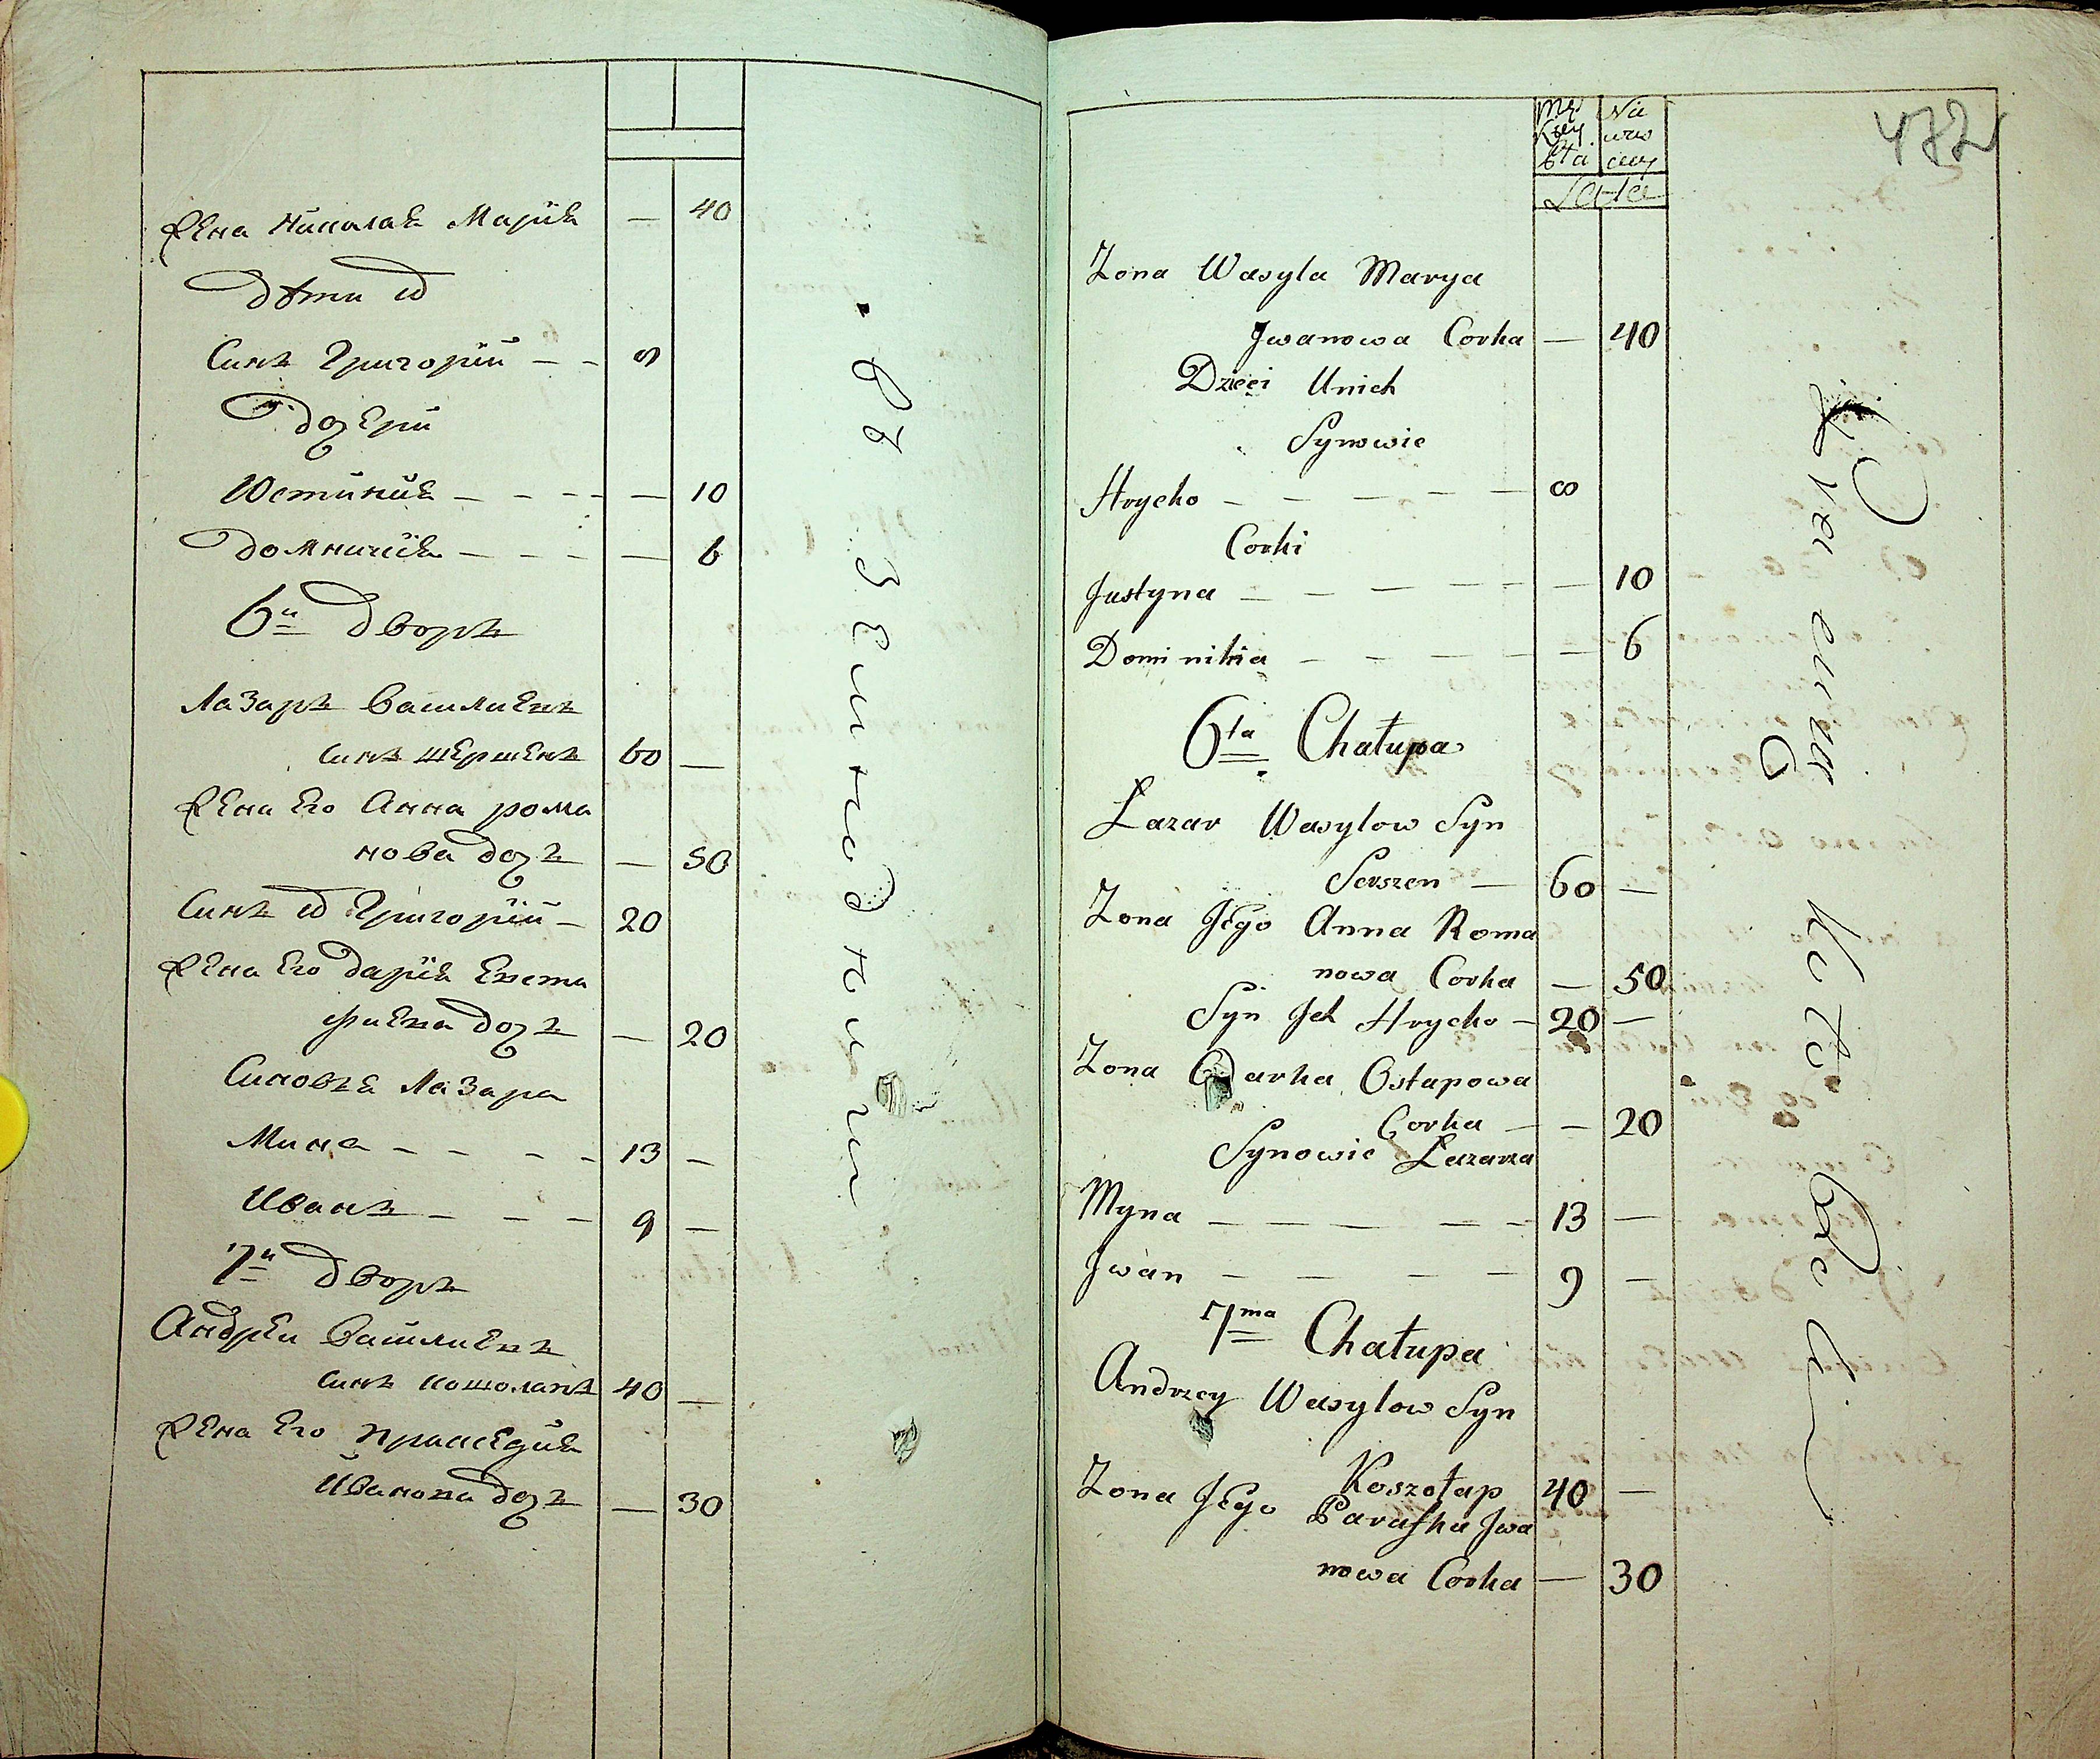 Жена Николая Марія — 40
Дѣти ихъ
Синъ Григорій — — 8
Дочери
Юстинія — — — — 10
Домникія — — — — 6
6й Дворъ
Лазаръ Василиевъ
синъ Шершенъ 60 —
Жена Его Анна Рома
нова дочъ — 50
Синъ ихъ Григорій — 20
Жена Его Дарія Евста
фиева дочъ — 20
Синовья Лазара
Мина — — — — 13 —
Иванъ — — — 9 —
7й Дворъ
Андрей Василиевъ
синъ Кошолапъ 40 —
Жена Его Праскедия
Иванова дочъ — 30
472
Lata
Zona Wasyla Marya
Jwanowa Corka — 40
Dzieci Unich
Synowie
Hrycko — — — — — 8
Corki
Justyna — — — — — 10
Dominikia — — — — — 6
6ta Chałupa
Łazar Wasylow Syn
Serszen — 60 —
Zona Jego Anna Roma
nowa Corka — 50
Syn Jch Hrycko — 20 —
Zona Odarka Ostapowa
Corka — — 20
Synowie Łazarza
Myna — — — — — 13 —
Jwan — — — — 9 —
7ma Chałupa
Andrzey Wasylow Syn
Koszołap 40 —
Zona Jego Paraska Jwa
nowa Corka — 30